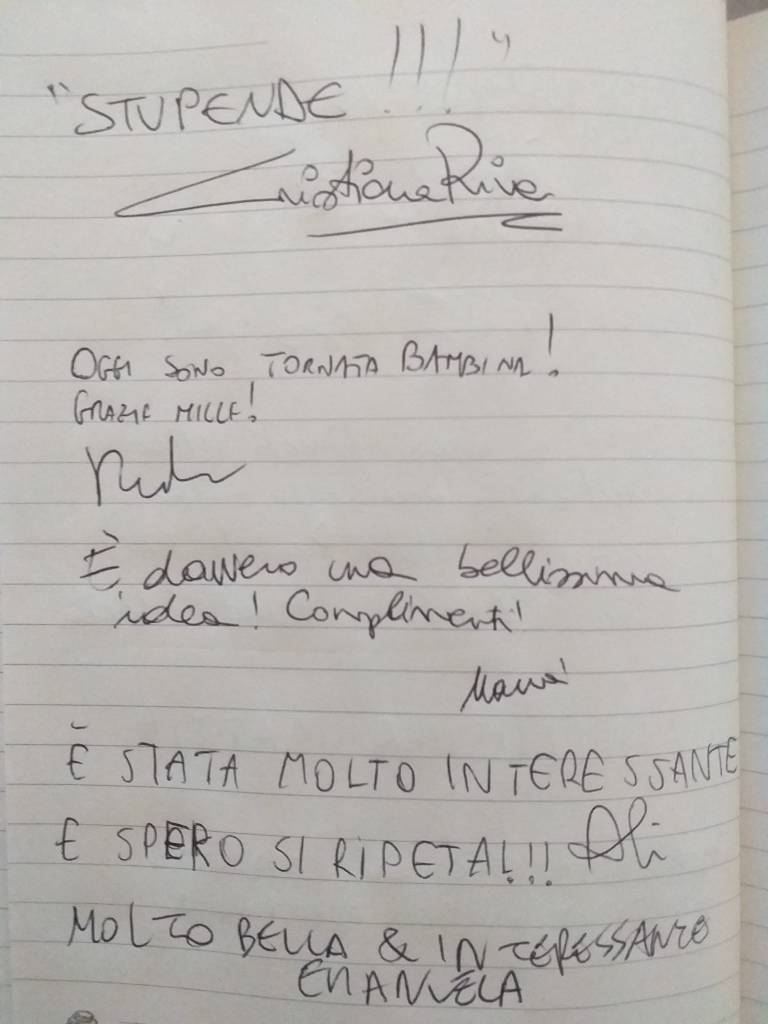 "STUPENDE !!!"
Cristiana Riva
OGGI SONO TORNATA BAMBINA!
GRAZIE MILLE!
È davvero una bellissima
idea! Complimenti!
È STATA MOLTO INTERESSANTE
E SPERO SI RIPETA!!! Ali
MOLTO BELLA & INTERESSANTE
EMANUELA